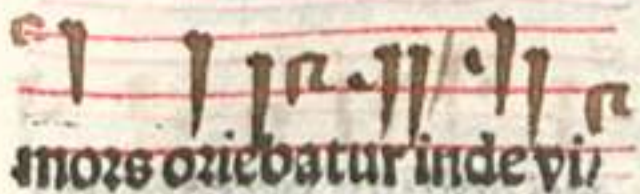 mors oriebatur inde vi/